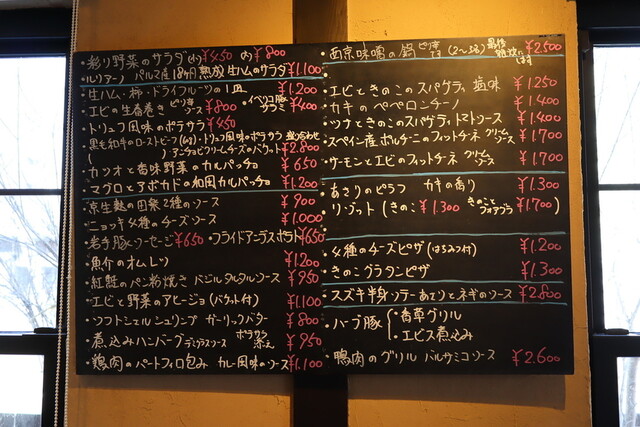 ・彩り野菜のサラダ(小)¥450 (大)¥800
・ルリアーノ パルマ産18ヶ月熟成 生ハムのサラダ ¥1.100
・生ハム・柿・ドライフルーツの1皿 ¥1.200
・エビの生春巻き ピリ辛ソース ¥800 ・イベリコ豚サラミ ¥400
・トリュフ風味のポテサラ ¥450
・黒毛和牛のローストビーフ(60g)・トリュフ風味のポテサラ 盛り合わせ
アンチョビクリームチーズのバケット ¥2.800
・カツオと香味野菜のカルパッチョ ¥1.200
・マグロとアボカドの和風カルパッチョ ¥1.200
・京生麩の田楽 2種のソース ¥900
・ニョッキ 4種のチーズソース ¥1.000
・岩手豚ソーセージ ¥650 ・フライドアンデスポテト ¥650
・魚介のオムレツ ¥1.200
・紅鮭のパン粉焼き バジルタルタルソース ¥950
・エビと野菜のアヒージョ(バケット付) ¥1.100
・ソフトシェルシュリンプ ガーリックバター ¥800
・煮込みハンバーグ デミグラスソース ポテサラ添え ¥950
・鶏肉のパートフィロ包み カレー風味のソース ¥1.100
・西京味噌の鍋 ピリ辛です (2〜3名) 最後雑炊にします ¥2.500
・エビときのこのスパゲティ 塩味 ¥1.250
・カキのペペロンチーノ ¥1.400
・ツナときのこのスパゲティ トマトソース ¥1.400
・スペイン産ポルチーニのフィットチネ クリームソース ¥1.700
・サーモンとエビのフィットチネ クリームソース ¥1.700
・あさりのピラフ カキの香り ¥1.300
・リゾット (きのこ ¥1.300 きのことフォアグラ ¥1.700)
・4種のチーズピザ (はちみつ付) ¥1.200
・きのこグラタンピザ ¥1.300
・スズキ半身ソテー あさりとネギのソース ¥2.800
・ハーブ豚 ・香草グリル
・エビス煮込み
・鴨肉のグリル バルサミコソース ¥2.600